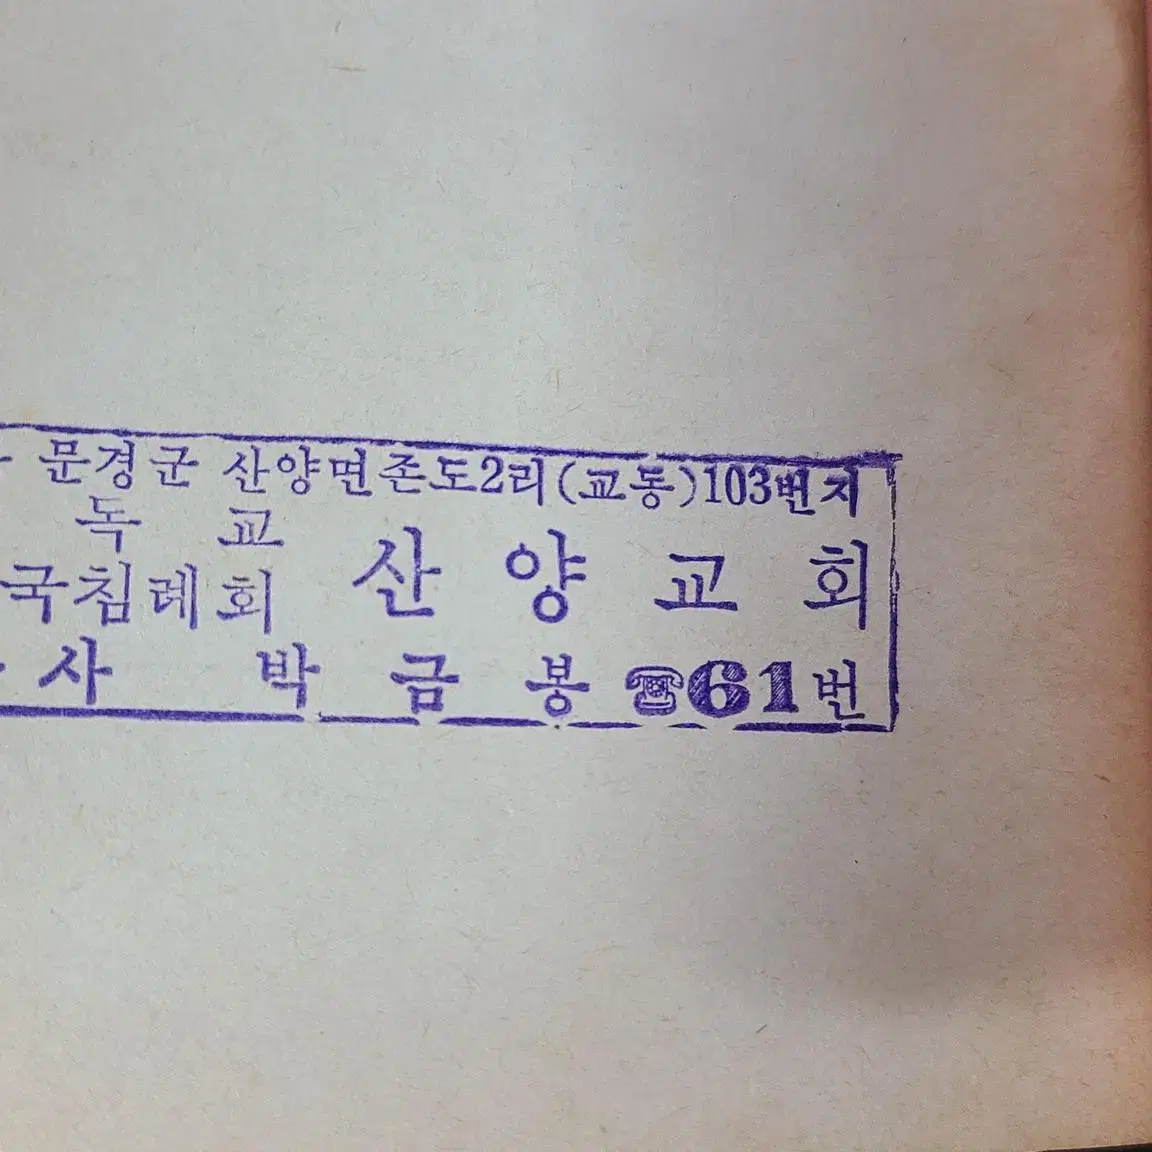 문경군 산양면존도2리(교동)103번지
독교
국침례회 산양교회
사 박금봉 ☎61번